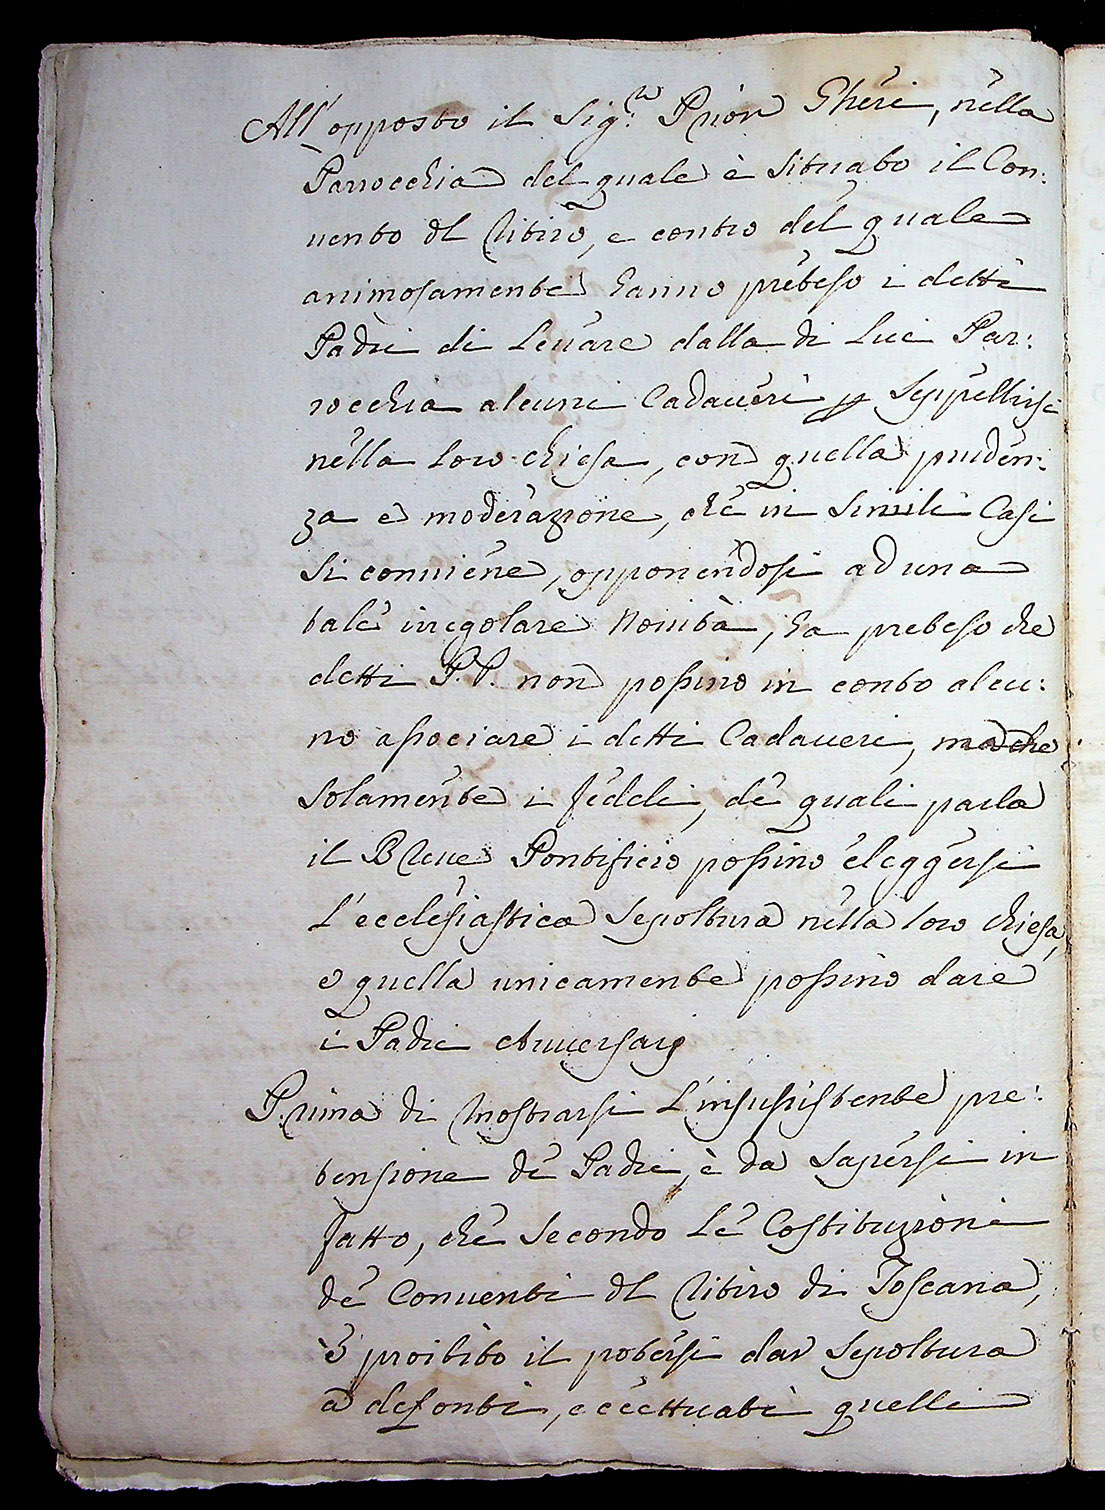 All'opposto il Sig.r Prior Gheri, nella
Parrocchia del quale è situato il Con:
uento dl Ritiro, e contro del quale
animosamente hanno preteso i detti
Padri di leuare dalla di lui Par:
rocchia alcuni Cadaueri p seppellirsi
nella loro chiesa, con quella pruden:
za e moderazione, che in simili Casi
si conuiene, opponendosi ad una
tale irregolare Nouità, ha preteso che
detti P.P. non possino in conto alcu:
no associare i detti Cadaueri, ma che
solamente i fedeli, de quali parla
il Breue Pontificio possino eleggersi
l'ecclesiastica sepoltura nella loro chiesa,
e quella unicamente possino dare
i Padri Auuersarj
Prima di mostrarsi l'insussistente pre:
tensione de Padri, è da sapersi in
fatto, che secondo le Costituzioni
de Conuenti dl Ritiro di Toscana,
è proibito il potersi dar sepoltura
a defonti, eccettuati quelli